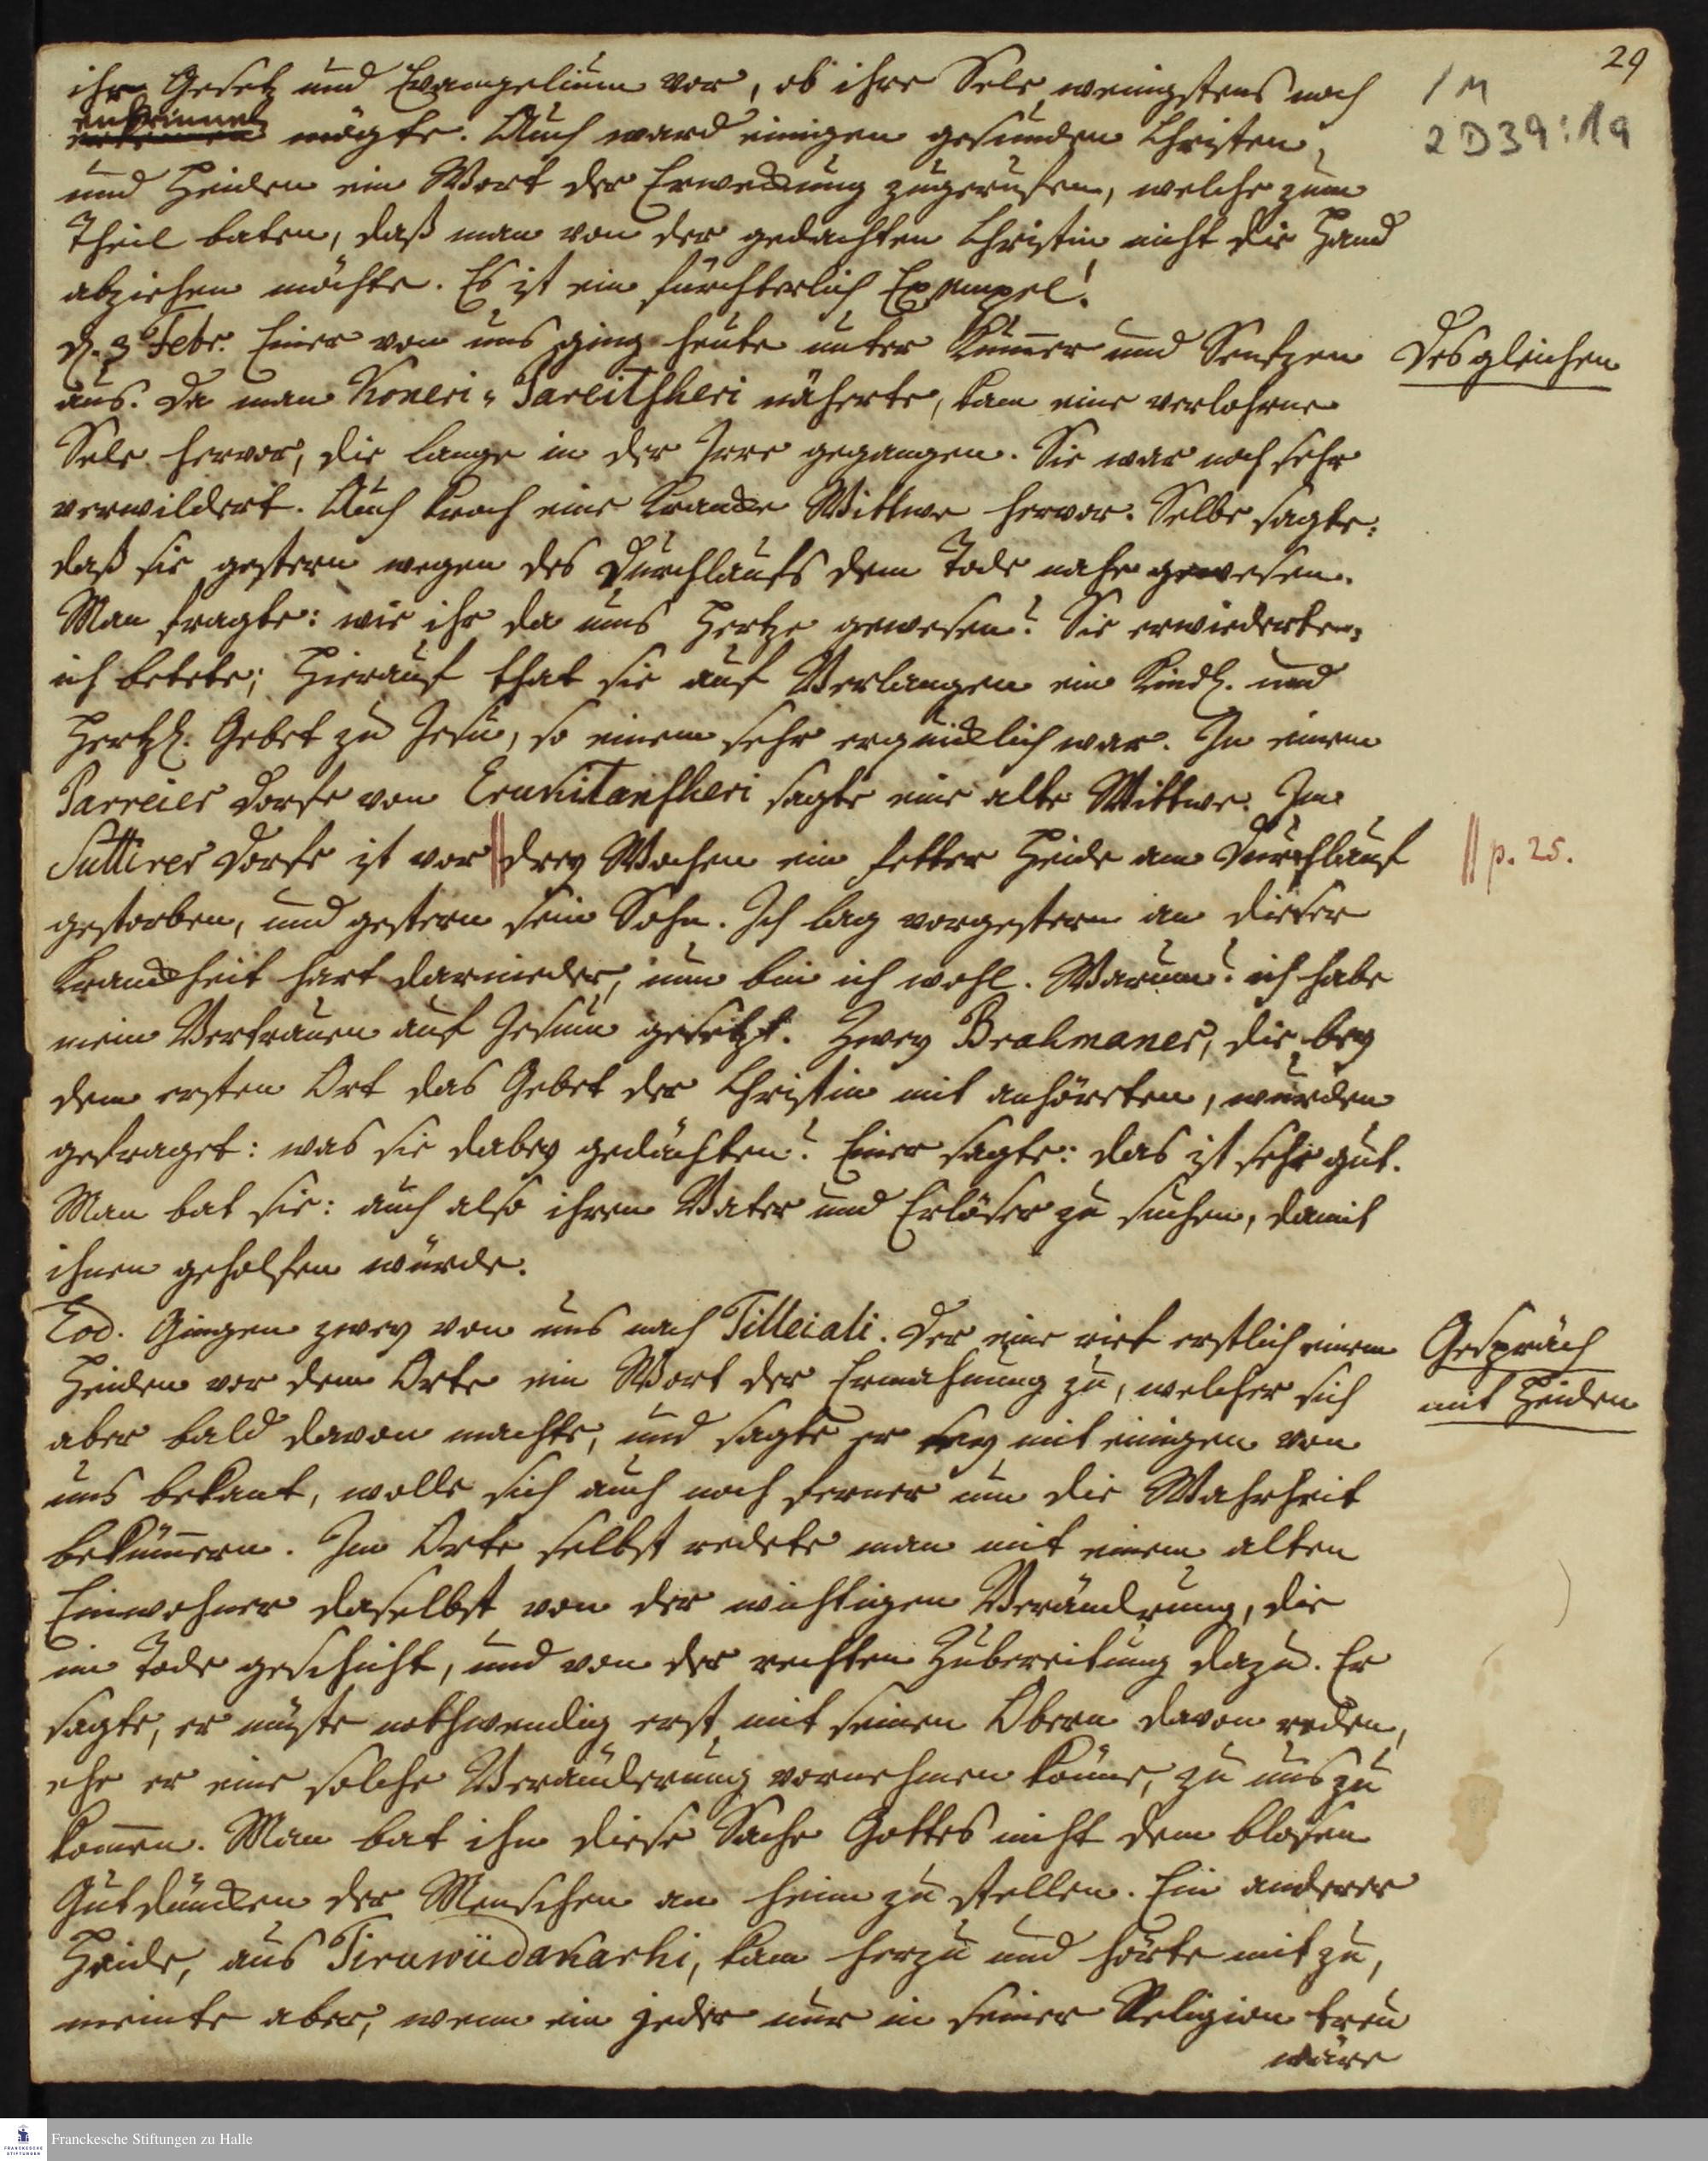 29
1 M
2 D 39:19
ihr Gesetz und Evangelium vor, ob ihre Sele wenigstens noch
entrinnen
mögte. Auch ward einigen gesunden Christen
und Heiden ein Wort der Erweckung zugerufen, welche zum
Theil baten, daß man von der gedachten Christin nicht die Hand
abziehen möchte. Es ist ein fürchterlich Exempel!
d. 3 Febr. Einer von uns ging heute unter Kum̄er und Seufzen
Desgleichen
aus. Da man Koneri-Pareitsheri näherte, kam eine verlohrne
Sele hervor, die lange in der Irre gegangen. Sie war noch sehr
verwildert. Auch kroch eine krancke Wittwe hervor. Selbe sagte:
daß sie gestern wegen des Durchlaufs dem Tode nahe gewesen.
Man fragte: wie ihr da ums Hertze gewesen? Sie erwiederte:
ich betete; Hierauf that sie auf Verlangen ein kindl. und
hertzl. Gebet zu Jesu, so einem sehr erquicklich war. In einem
Parreier Dorfe von Erukitansheri sagte eine alte Wittwe. Im
Suttirer Dorfe ist vor || drey Wochen ein fetter Heide am Durchlauf
|| p. 25.
gestorben, und gestern sein Sohn. Ich lag vorgestern an dieser
Kranckheit hart darnieder, nun bin ich wohl. Warum? ich habe
mein Vertrauen auf Jesum gesetzt. Zwey Brahmaner, die bey
dem ersten Ort das Gebet der Christin mit anhöreten, wurden
gefraget: was sie dabey gedächten? Einer sagte: das ist sehr gut.
Man bat sie: auch also ihren Vater und Erlöser zu suchen, damit
ihnen geholfen würde.
Eod. Gingen zwey von uns nach Tilleiali. Der eine rief erstlich einem
Gespräch
Heiden vor dem Orte ein Wort der Ermahnung zu, welcher sich
mit Heiden
aber bald davon machte, und sagte er sey mit einigen von
uns bekant, wolle sich auch noch ferner um die Wahrheit
beküm̄ern. Im Orte selbst redete man mit einem alten
Einwohner daselbst von der wichtigen Verändrung, die
im Tode geschicht, und von der rechten Zubereitung dazu. Er
sagte, er müste nothwendig erst mit seinen Obern davon reden,
ehe er eine solche Veränderung vornehmen könne, zu uns zu
kom̄en. Man bat ihn diese Sache Gottes nicht dem blosen
Gutdüncken der Menschen an heim zu stellen. Ein anderer
Heide, aus Tiruwüdakarhi, kam herzu und hörte mit zu,
meinte aber, wenn ein jeder nur in seiner Religion treu
wäre
Franckesche Stiftungen zu Halle